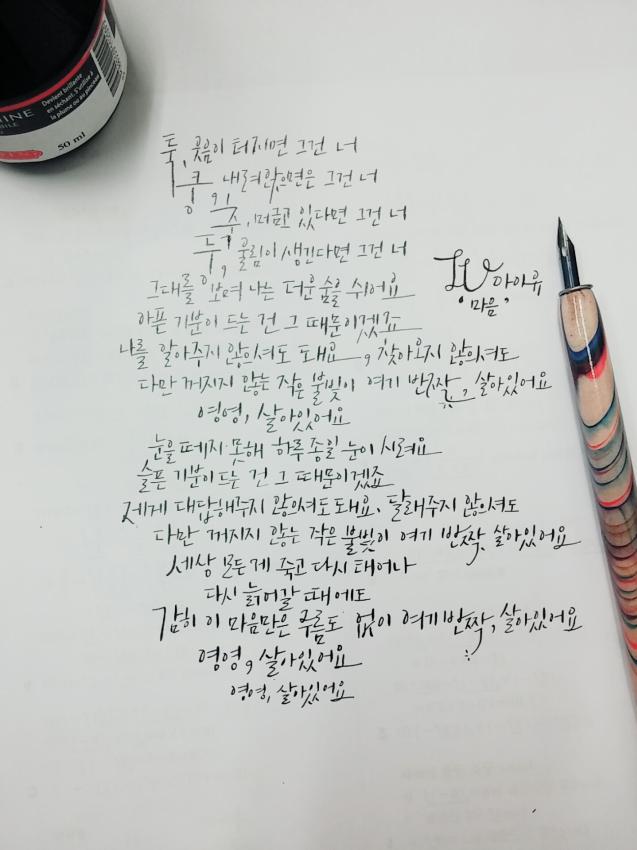 INE
BILE
Devient brillante
en séchant. S'utilise à
la plume ou au pinceau
50 ml
툭, 웃음이 터지면 그건 너
쿵, 내려앉으면은 그건 너
축, 머금고 있다면 그건 너
둥, 울림이 생긴다면 그건 너
그대를 보며 나는 더운 숨을 쉬어요
아픈 기분이 드는 건 그 때문이겠죠
나를 알아주지 않으셔도 돼요, 찾아오지 않으셔도
다만 꺼지지 않는 작은 불빛이 여기 반짝, 살아있어요
영영, 살아있어요
눈을 떼지 못해 하루종일 눈이 시려요
슬픈 기분이 드는 건 그 때문이겠죠
제게 대답해주지 않으셔도 돼요, 달래주지 않으셔도
다만 꺼지지 않는 작은 불빛이 여기 반짝, 살아있어요
세상 모든 게 죽고 다시 태어나
다시 늙어갈 때에도
감히 이 마음만은 주름도 없이 여기 반짝, 살아있어요
영영, 살아있어요
영영, 살아있어요
IU 아이유
'마음'